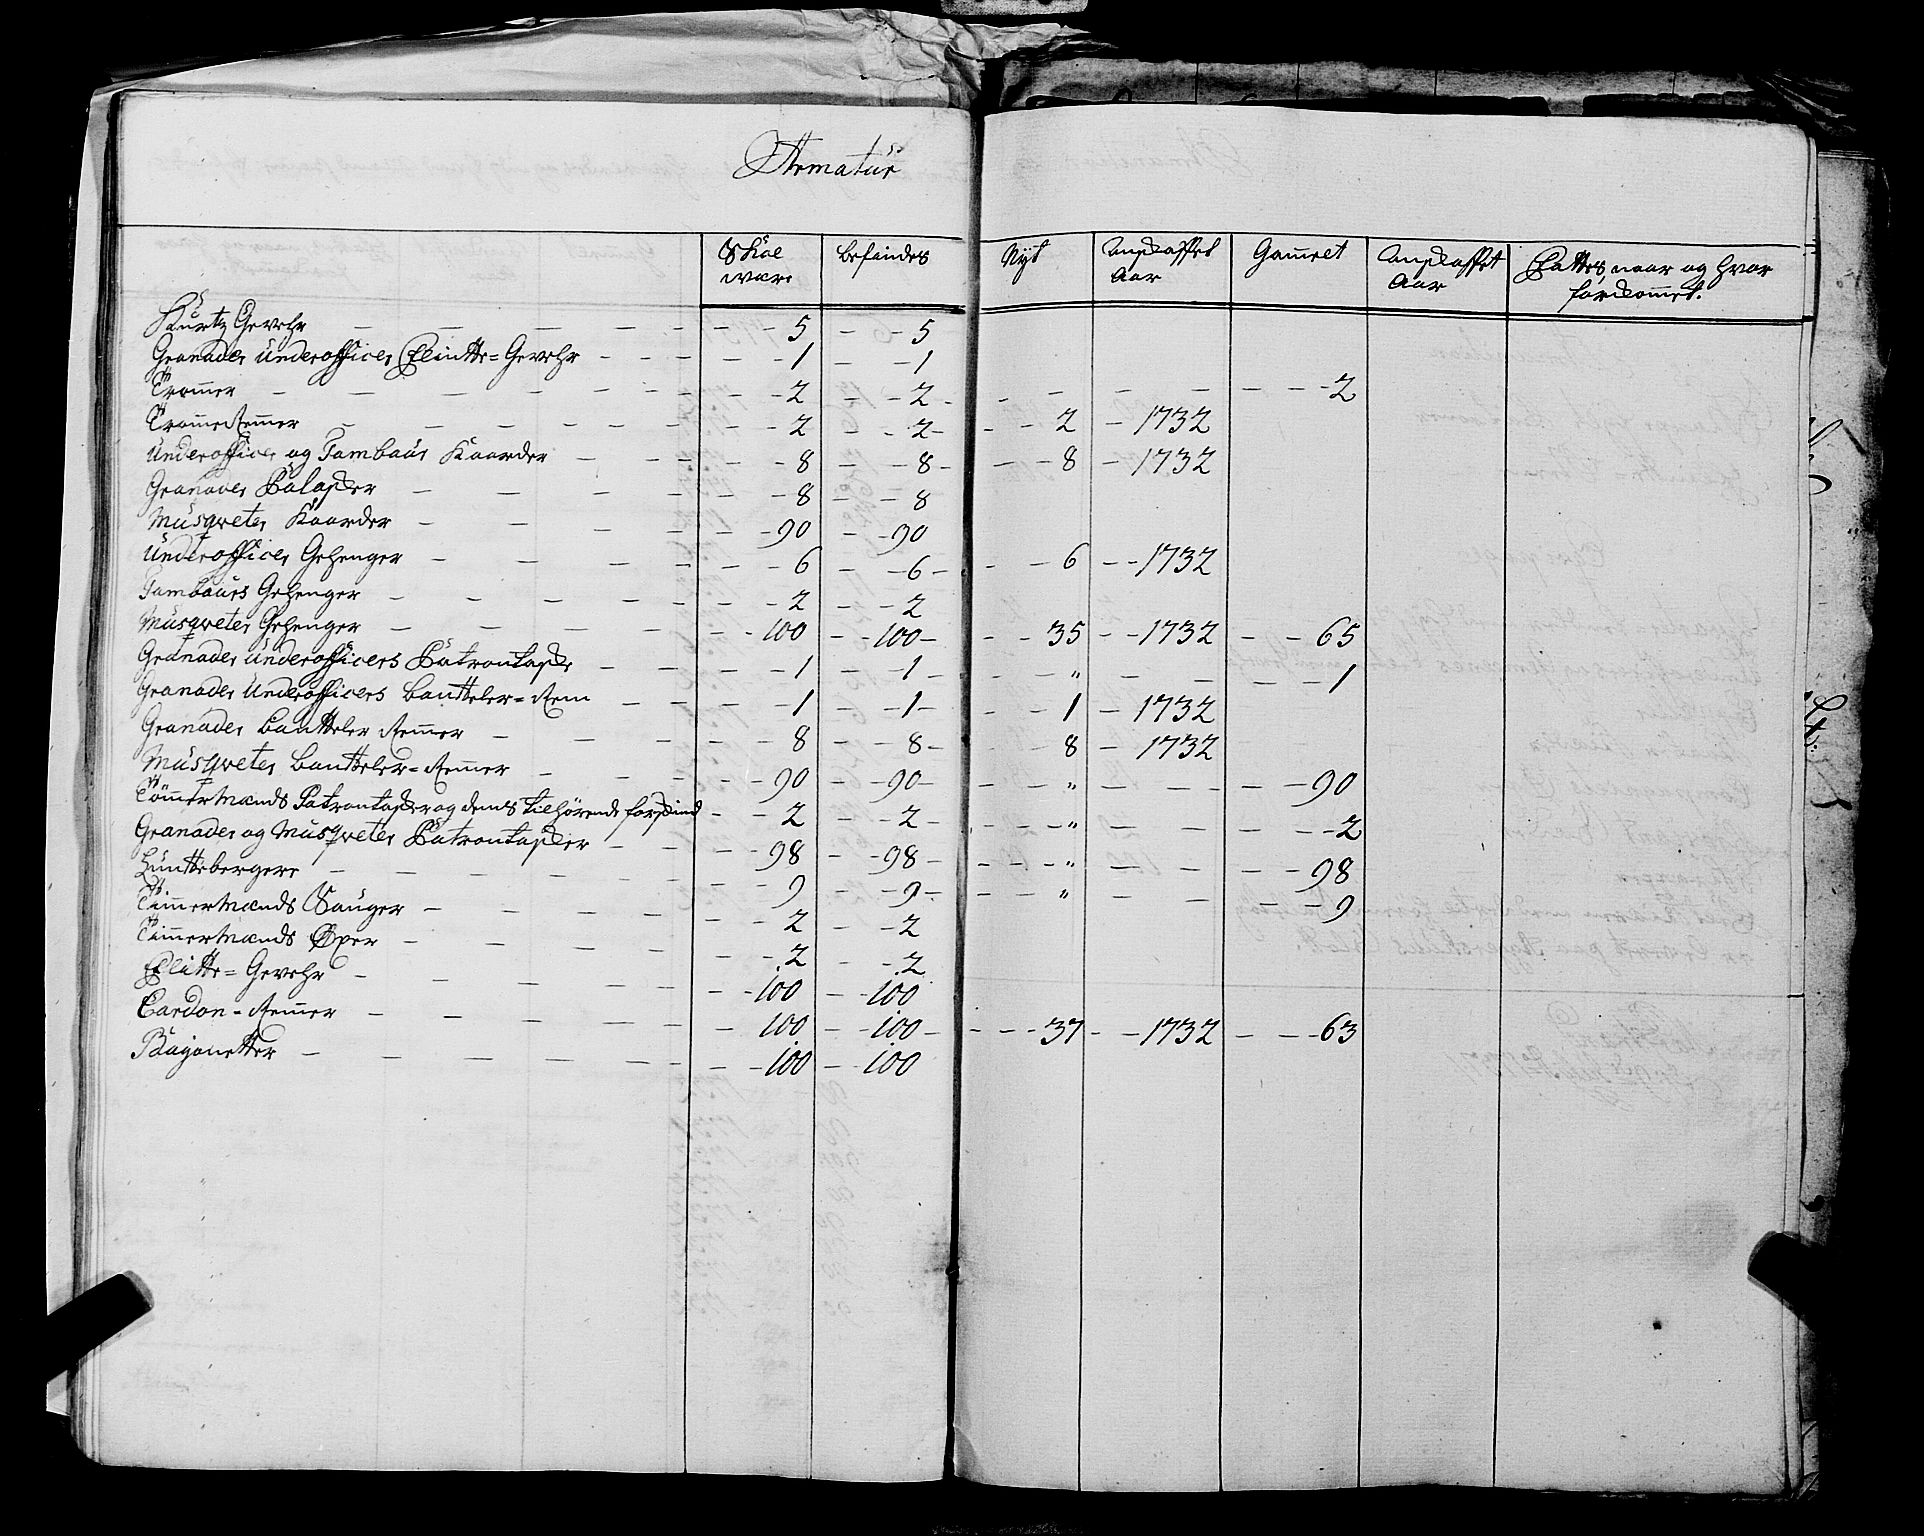 Armatur
Skal være | befindes | Nyt | Anskaffet Aar | Gammelt | Anskaffet Aar | Fattes, naar og hvor forkommet.
Kurtz Gevehr — 5 — 5
Granader Underofficer Flintte=Gevehr — 1 — 1
Trommer — 2 — 2 — — — 2
TrommeRemmer — 2 — 2 — 2 — 1732
Underofficer og Tambaur Kaarder — 8 — 8 — 8 — 1732
Granader Palasker — 8 — 8
Musqveter Kaarder — 90 — 90
Underofficer Gehenger — 6 — 6 — 6 — 1732
Tambaurs Gehenger — 2 — 2
Musqveter Gehenger — 100 — 100 — 35 — 1732 — 65
Granader Underofficers Patrontaske — 1 — 1 — " — — 1
Granader Underofficers Bantteler=Rem — 1 — 1 — 1 — 1732
Granader Bantteler Remmer — 8 — 8 — 8 — 1732
Musqveter Bantteler=Remmer — 90 — 90 — " — — 90
Tömmermænds Patrontasker og dens tilhørende forskind — 2 — 2 — " — — 2
Granader og Musqveter Patrontasker — 98 — 98 — " — — 98
Lunttebergere — 9 — 9 — " — — 9
Timmermænds Sauger — 2 — 2
Timmermænds Øxer — 2 — 2
Flitte=Gevehr — 100 — 100
Cardon=Remmer — 100 — 100 — 37 — 1732 — 63
Bajonetter — 100 — 100